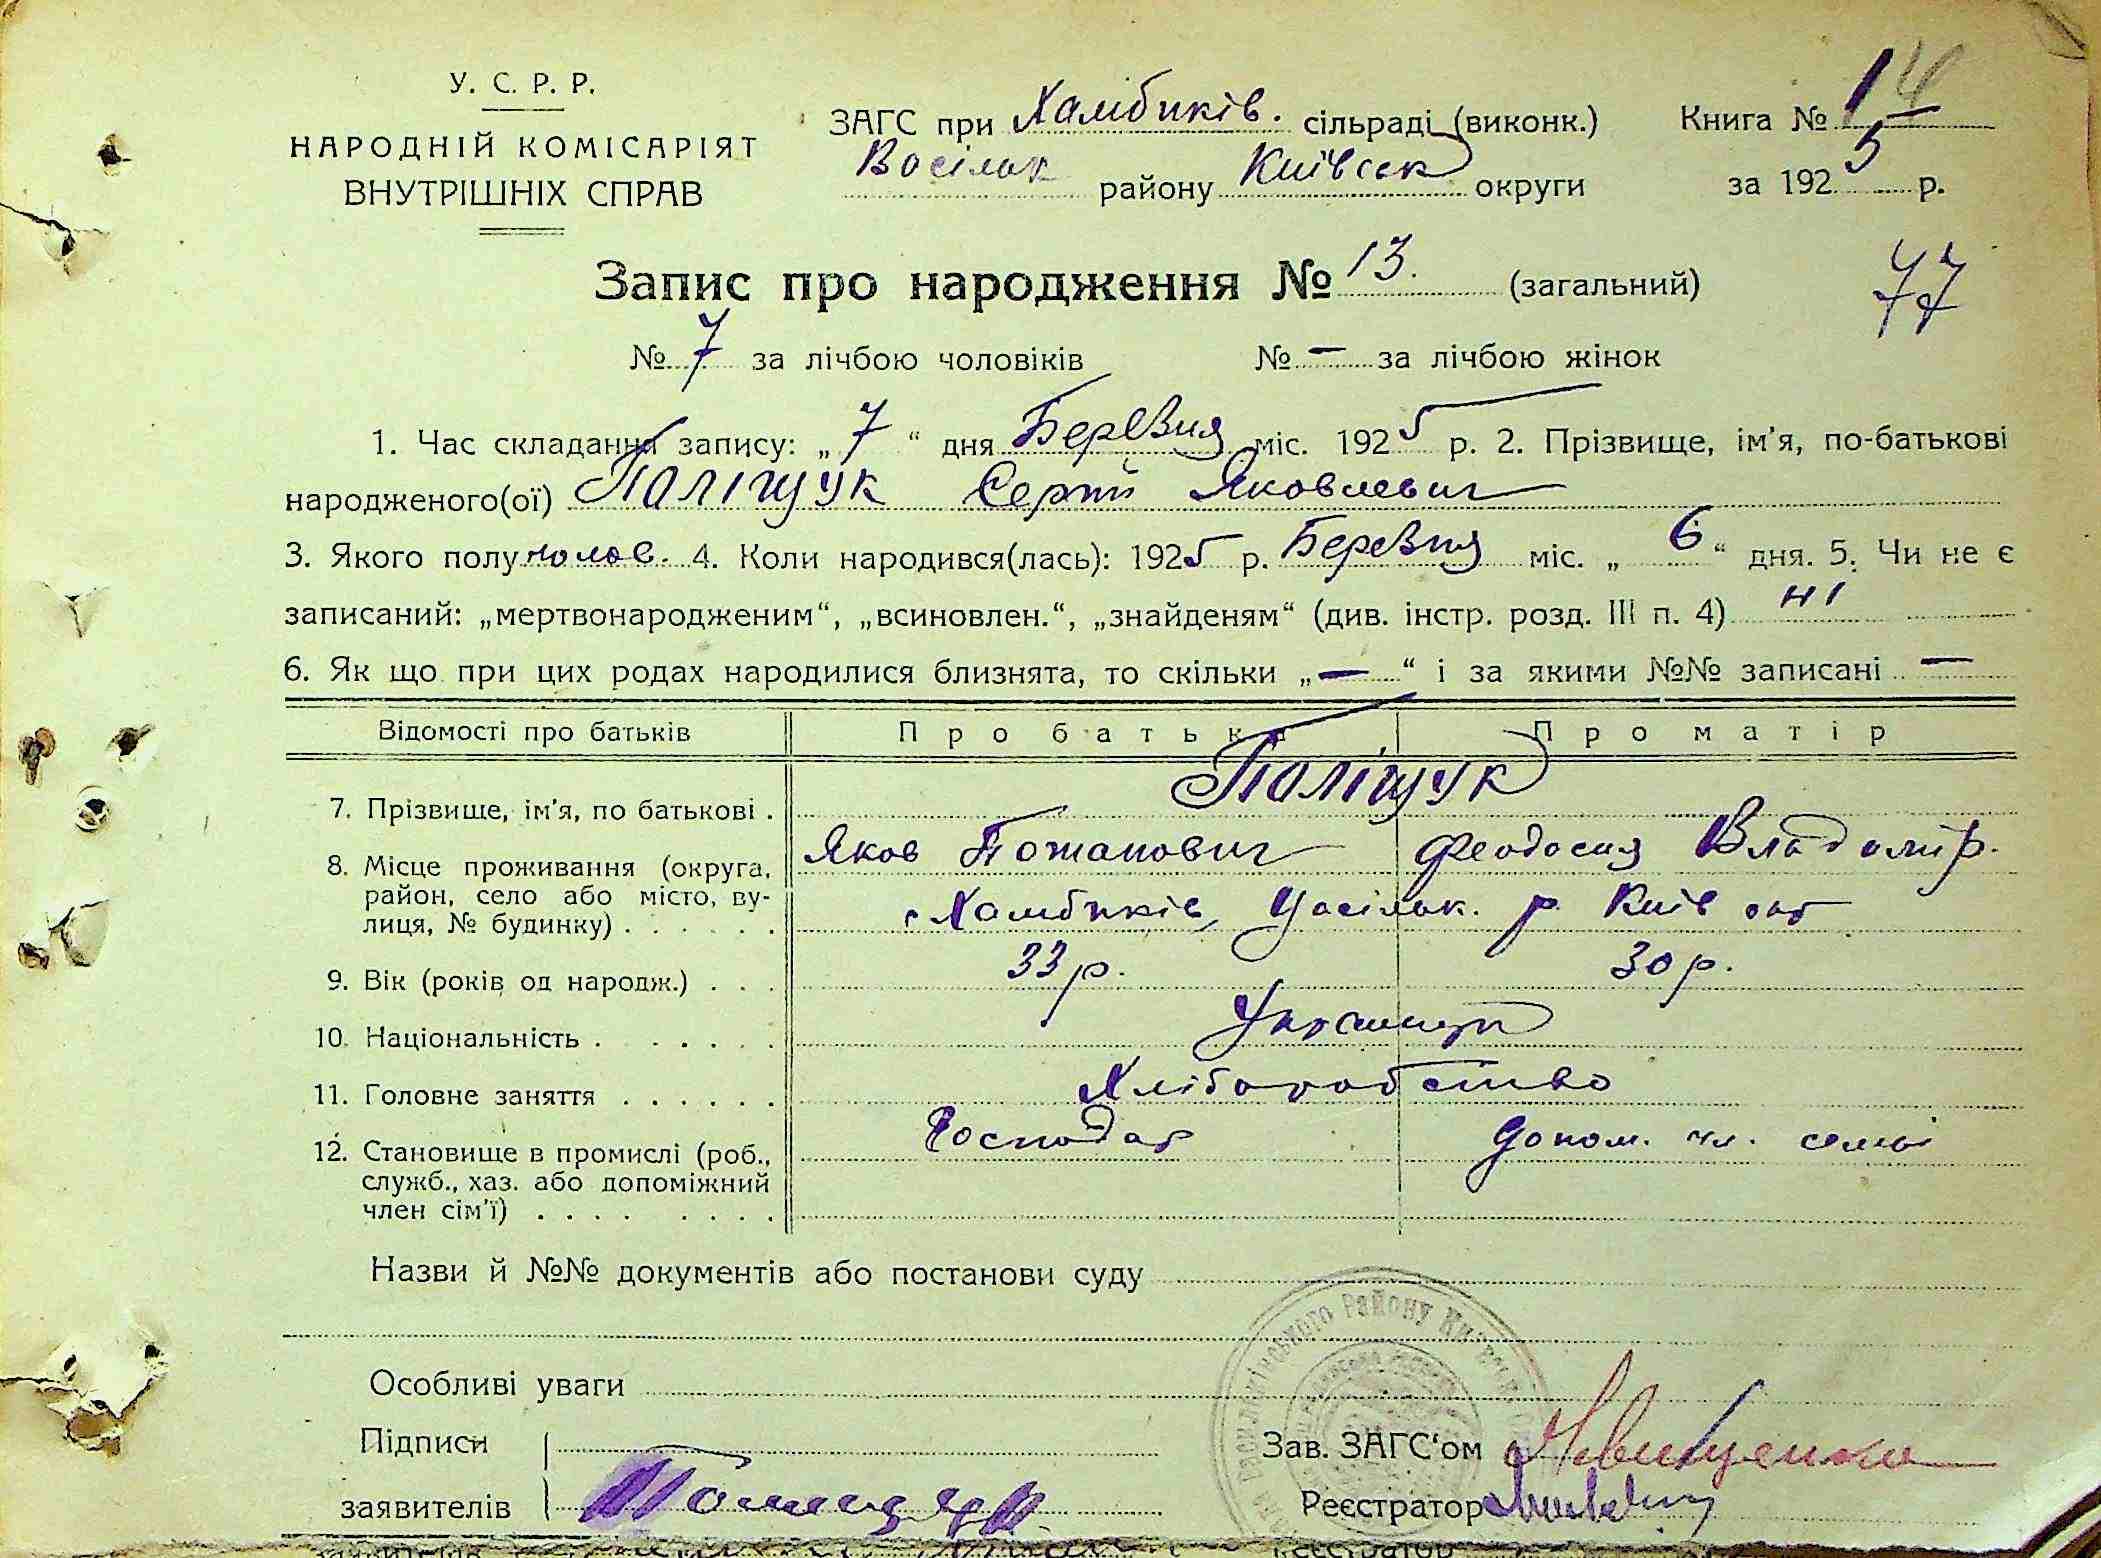 У. С. Р. Р.
НАРОДНІЙ КОМІСАРІЯТ
ВНУТРІШНІХ СПРАВ
ЗАГС при Хамбиків. сільраді (виконк.)
Васільк району Київськ округи
Книга № 1 4
за 1925 р.
Запис про народження № 13. (загальний)
77
№ 7 за лічбою чоловіків № — за лічбою жінок
1. Час складання запису: „7“ дня Березня міс. 1925 р. 2. Прізвище, ім'я, по-батькові
народженого(ої) Поліщук Сергій Яковлевич
3. Якого полу чолов. 4. Коли народився(лась): 1925 р. Березня міс. „6“ дня. 5. Чи не є
записаний: „мертвонародженим“, „всиновлен.“, „знайденям“ (див. інстр. розд. III п. 4) ні
6. Як що при цих родах народилися близнята, то скільки „—“ і за якими №№ записані —
Відомості про батьків Про батька Про матір
Поліщук
7. Прізвище, ім'я, по батькові .
Яков Потапович Феодосия Владимір.
8. Місце проживання (округа,
район, село або місто, ву-
лиця, № будинку) . . . . . .
с Хамбиків, Васільк. р. Київ окр
9. Вік (років од народж.) . . . 33 р. 30 р.
10. Національність . . . . . . Українці
11. Головне заняття . . . . . . Хліборобство
12. Становище в промислі (роб.,
служб., хаз. або допоміжний
член сім'ї) . . . . . . . .
Господар допом. чл. семьі
Назви й №№ документів або постанови суду
Особливі уваги
Підписи
заявителів Полищук
Зав. ЗАГС'ом
Реєстратор
Району